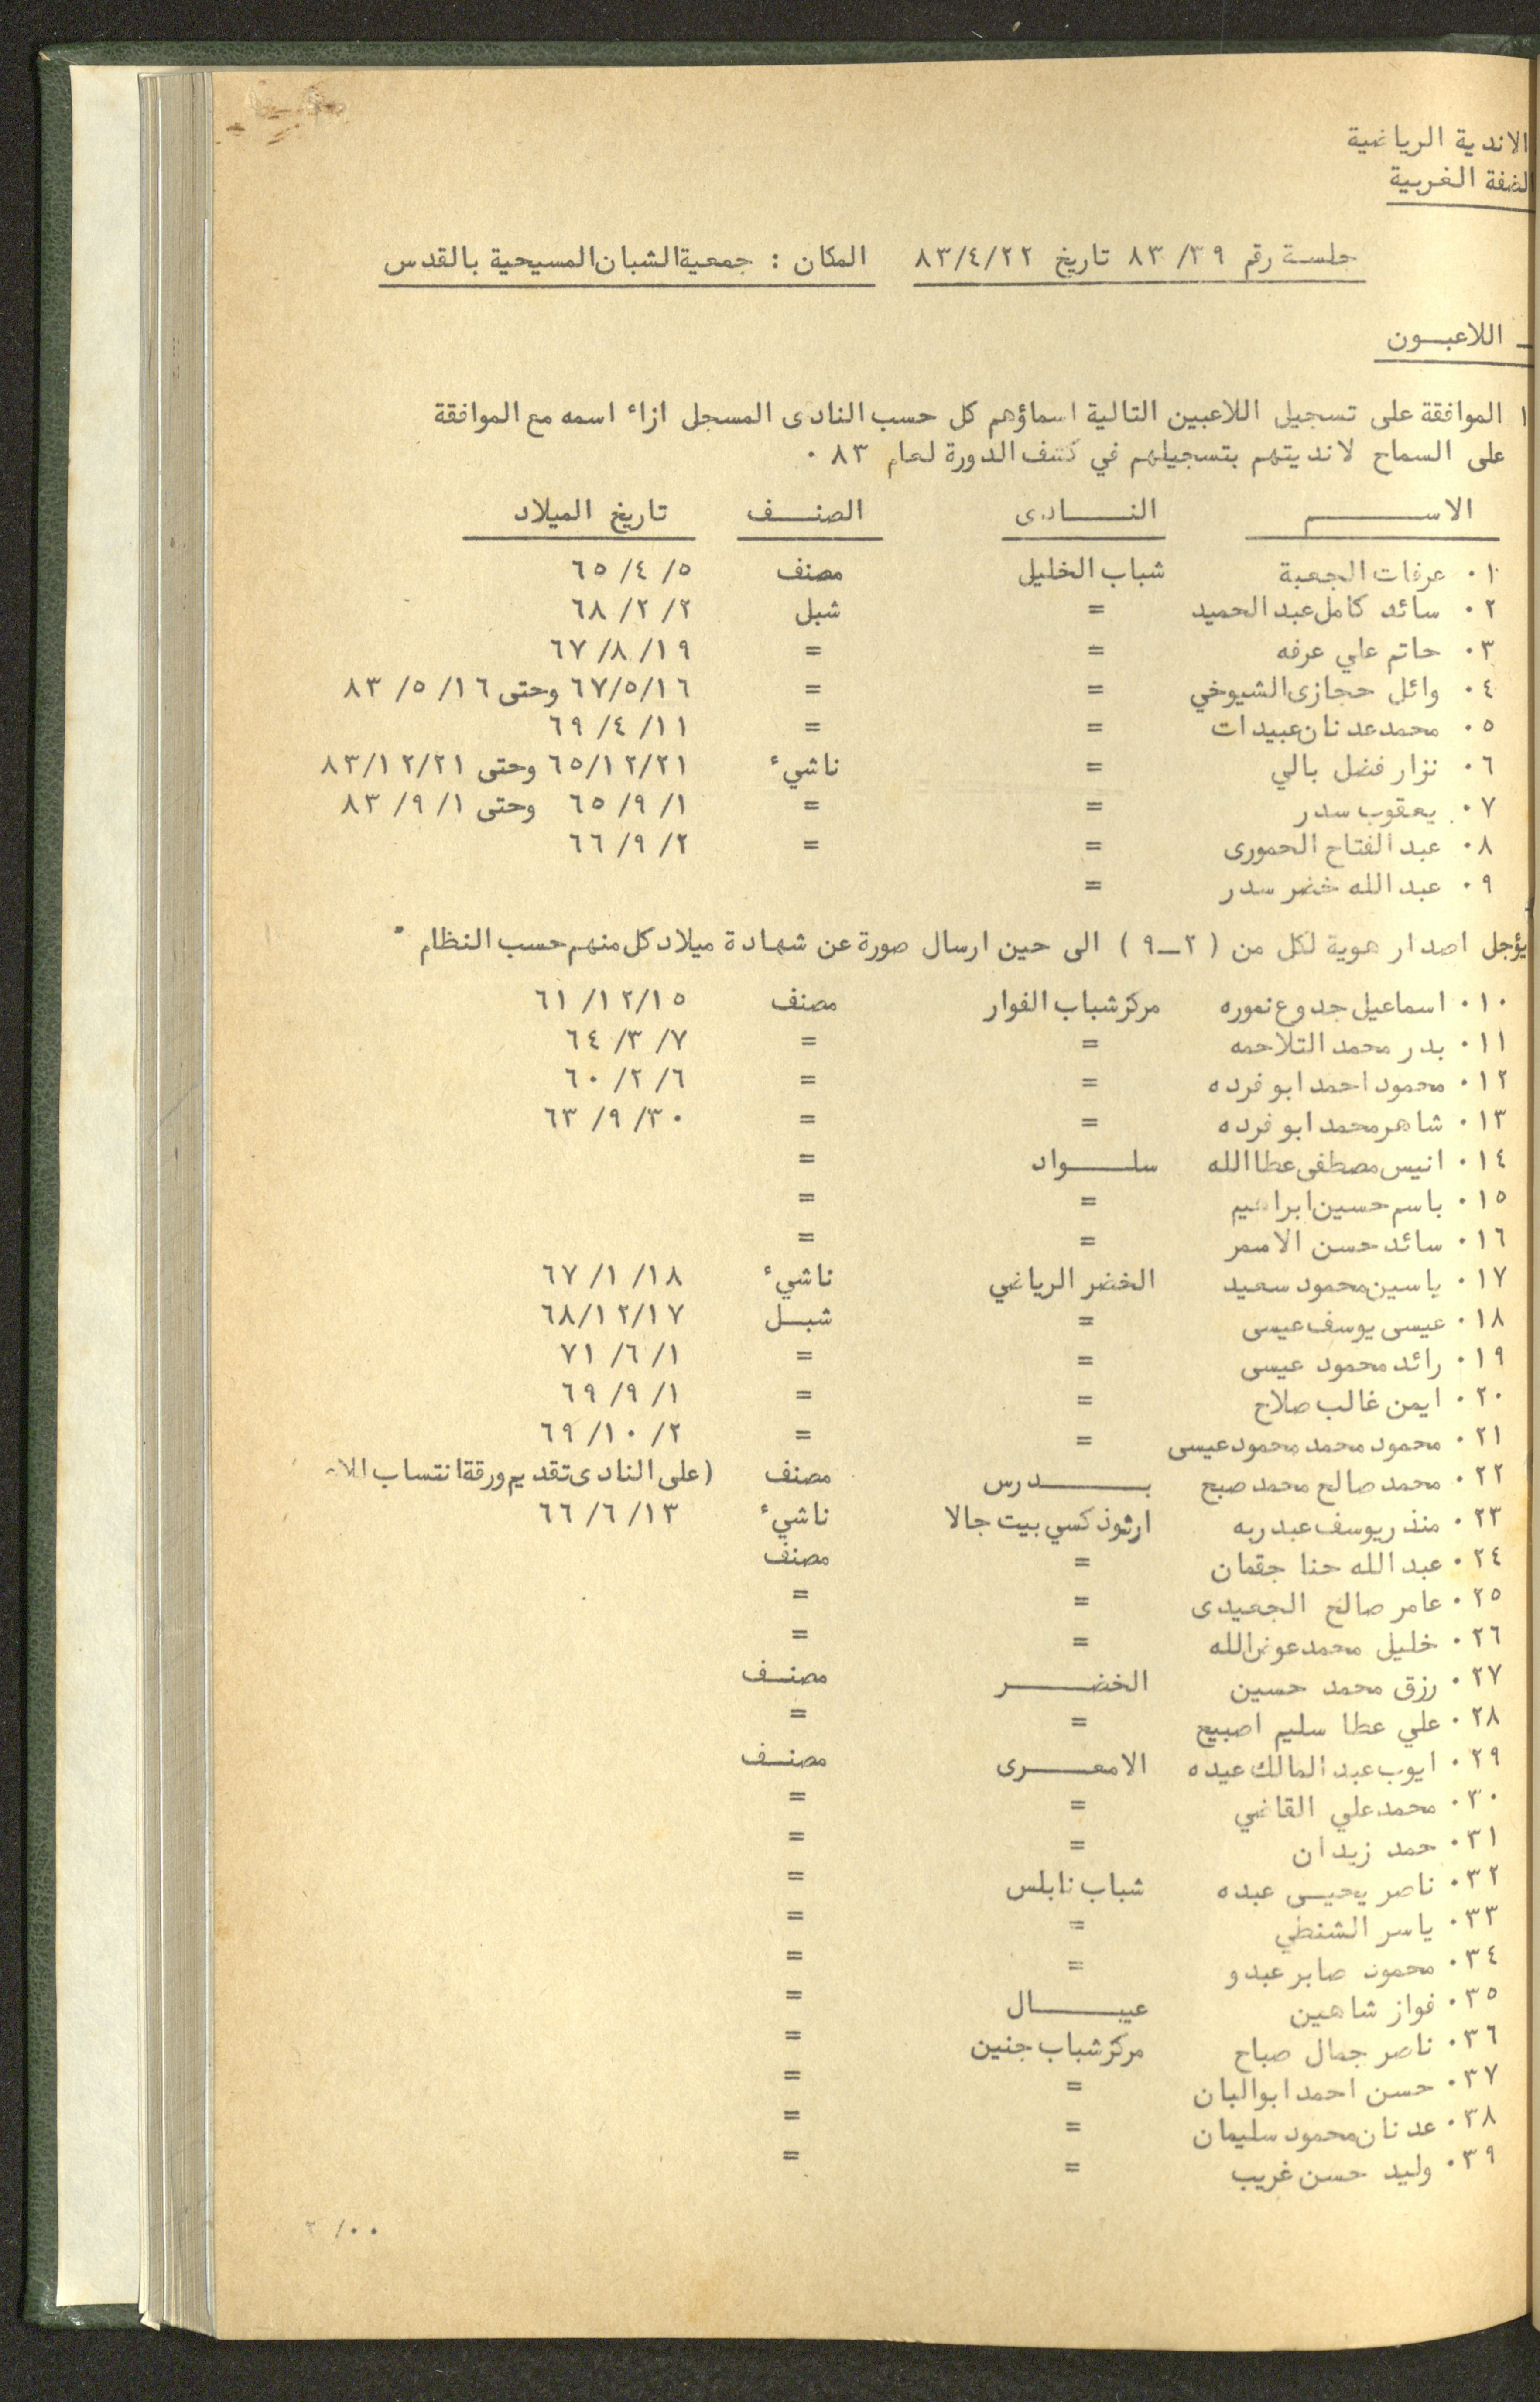 الاندية الرياضية
لضفة الغربية
جلسة رقم ٨٣/٣٩ تاريخ ٨٣/٤/٢٢ المكان : جمعية الشبان المسيحية بالقدس
ـ اللاعبــون
١ الموافقة على تسجيل اللاعبين التالية اسماؤهم كل حسب النادى المسجل ازاء اسمه مع الموافقة
على السماح لانديتهم بتسجيلهم في كشف الدورة لعام ٨٣ ٠
الاســـــم النـــادى الصنــف تاريخ الميلاد
٠١ عرفات الجعبة شباب الخليل مصنف ٦٥/٤/٥
٠٢ سائد كامل عبد الحميد = شبل ٦٨/٢/٢
٠٣ حاتم علي عرفه = = ٦٧/٨/١٩
٠٤ وائل حجازى الشيوخي = = ٦٧/٥/١٦ وحتى ٨٣/٥/١٦
٠٥ محمد عدنان عبيدات = = ٦٩/٤/١١
٠٦ نزار فضل بالي = ناشيء ٦٥/١٢/٢١ وحتى ٨٣/١٢/٢١
٠٧ يعقوب سدر = = ٦٥/٩/١ وحتى ٨٣/٩/١
٠٨ عبد الفتاح الحمورى = = ٦٦/٩/٢
٠٩ عبد الله خضر سدر =
يؤجل اصدار هوية لكل من ( ٢ــ٩ ) الى حين ارسال صورة عن شهادة ميلاد كل منهم حسب النظام ٠
٠١٠ اسماعيل جدوع نموره مركز شباب الفوار مصنف ٦١/١٢/١٥
٠١١ بدر محمد التلاحمه = = ٦٤/٣/٧
٠١٢ محمود احمد ابو فرده = = ٦٠/٢/٦
٠١٣ شاهر محمد ابو فرده = = ٦٣/٩/٣٠
٠١٤ انيس مصطفى عطا الله سلــــواد =
٠١٥ باسم حسين ابراهيم = =
٠١٦ سائد حسن الاسمر = =
٠١٧ ياسين محمود سعيد الخضر الرياضي ناشيء ٦٧/١/١٨
٠١٨ عيسى يوسف عيسى = شبــل ٦٨/١٢/١٧
٠١٩ رائد محمود عيسى = = ٧١/٦/١
٠٢٠ ايمن غالب صلاح = = ٦٩/٩/١
٠٢١ محمود محمد محمود عيسى = = ٦٩/١٠/٢
٠٢٢ محمد صالح محمد صبح بــــــدرس مصنف (على النادى تقديم ورقة انتساب
٠٢٣ منذر يوسف عبد ربه ارثوذكسي بيت جالا ناشيء ٦٦/٦/١٣
٠٢٤ عبد الله حنا جقمان = مصنف
٠٢٥ عامر صالح الجعيدى = =
٠٢٦ خليل محمد عوض الله = =
٠٢٧ رزق محمد حسين الخضــــــر مصنــف
٠٢٨ علي عطا سليم اصبيح = =
٠٢٩ ايوب عبد المالك عيده الامعــــرى مصنــف
٠٣٠ محمد علي القاضي = =
٠٣١ حمد زيدان = =
٠٣٢ ناصر يحيــى عبده شباب نابلس =
٠٣٣ ياسر الشنطي = =
٠٣٤ محمود صابر عبدو = =
٠٣٥ فواز شاهين عيبـــــال =
٠٣٦ ناصر جمال صباح مركز شباب جنين =
٠٣٧ حسن احمد ابو البان = =
٠٣٨ عدنان محمود سليمان = =
٠٣٩ وليد حسن غريب = =
٢ /٠٠